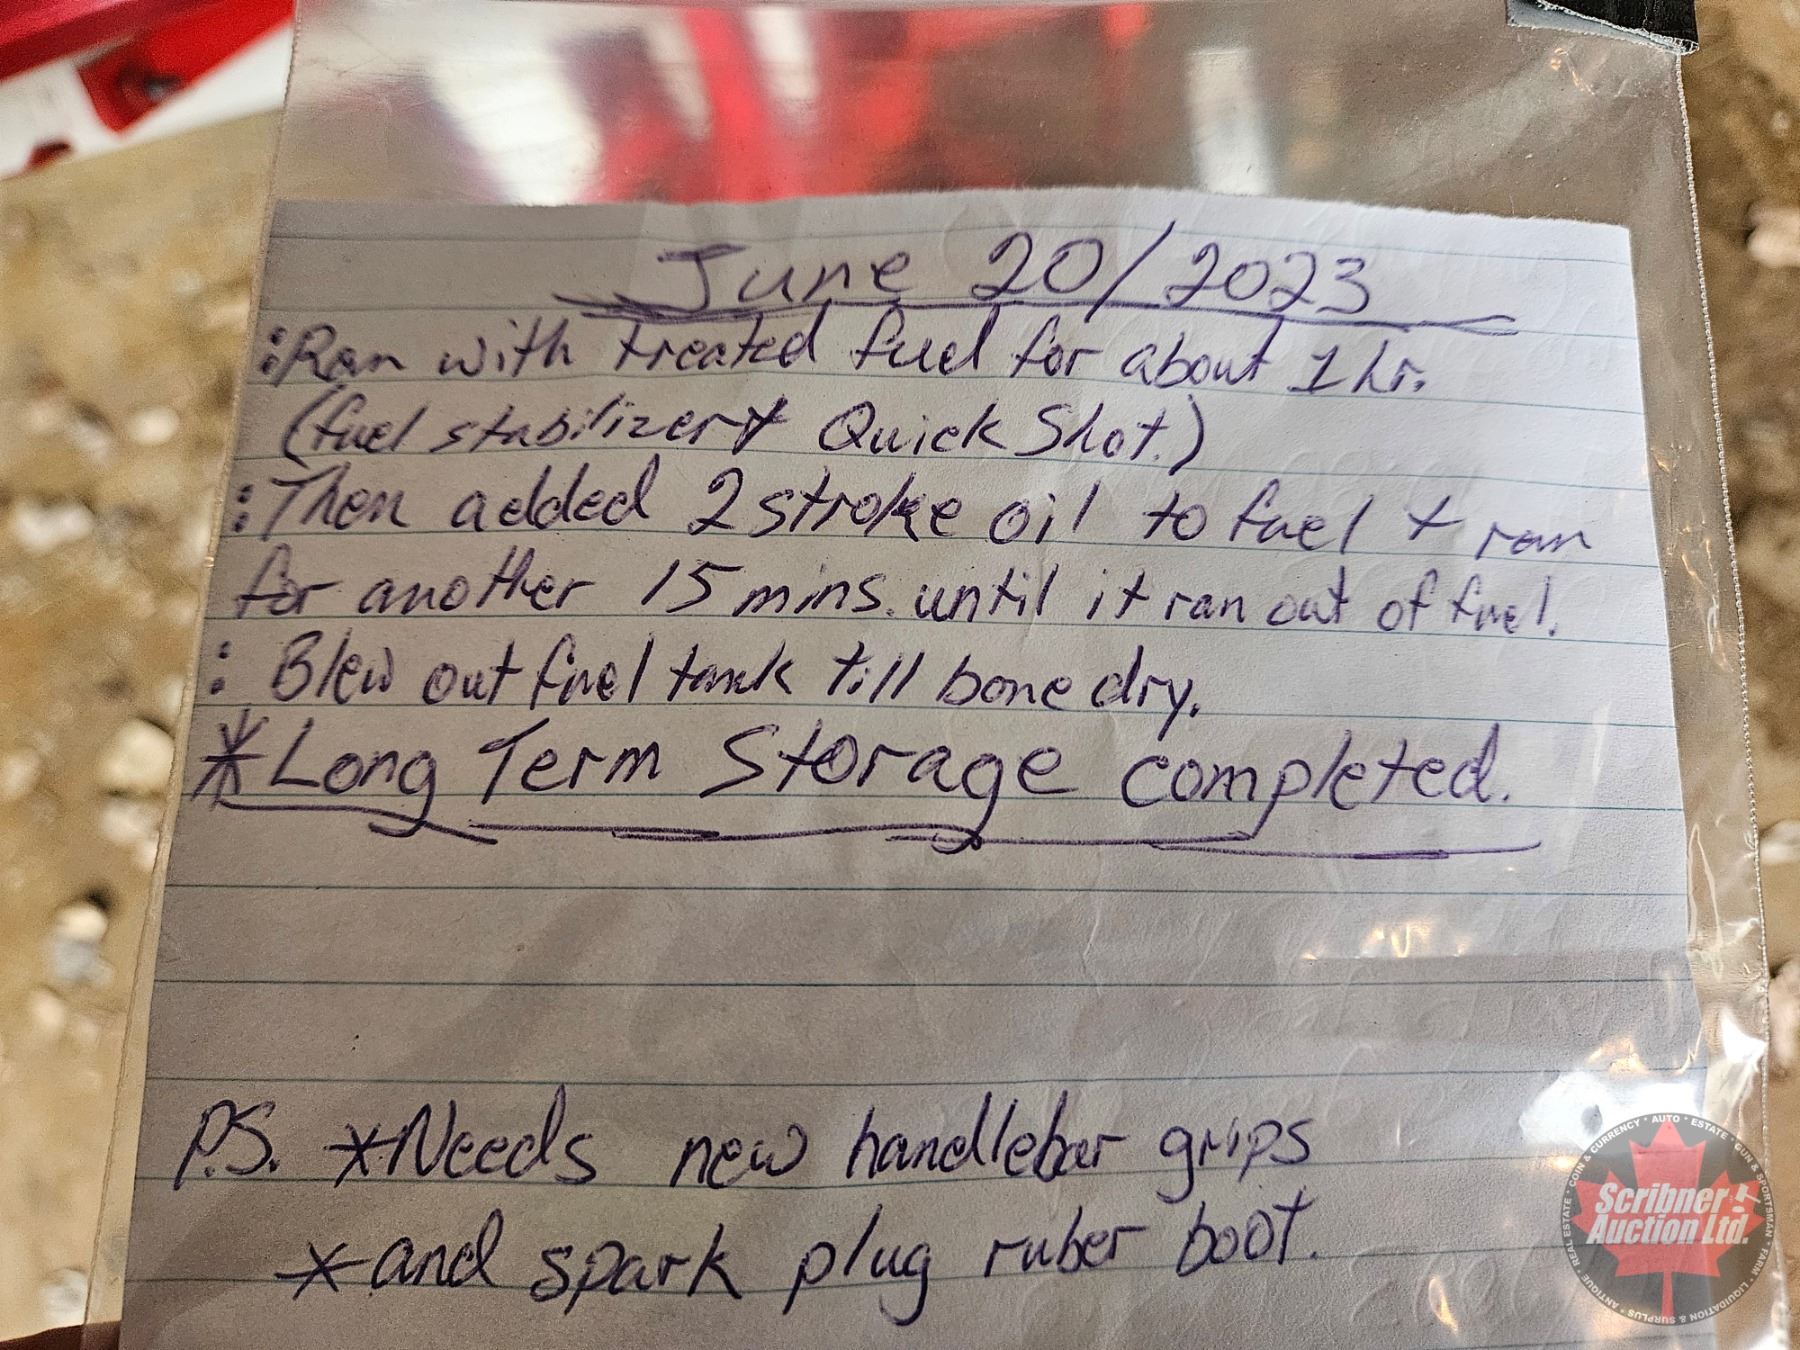 June 20/2023
:Ran with treated fuel for about 1 hr.
(fuel stabilizer + Quick Shot.)
:Then added 2 stroke oil to fuel + ran
for another 15 mins. until it ran out of fuel.
: Blew out fuel tank till bone dry.
*Long Term Storage completed.
P.S. *Needs new handlebar grips
*and spark plug ruber boot.
Scribner
Auction Ltd.
AUTO • ESTATE • GUN & SPORTSMAN • FARM • LIQUIDATION & SURPLUS • ANTIQUE • REAL ESTATE • COIN & CURRENCY •